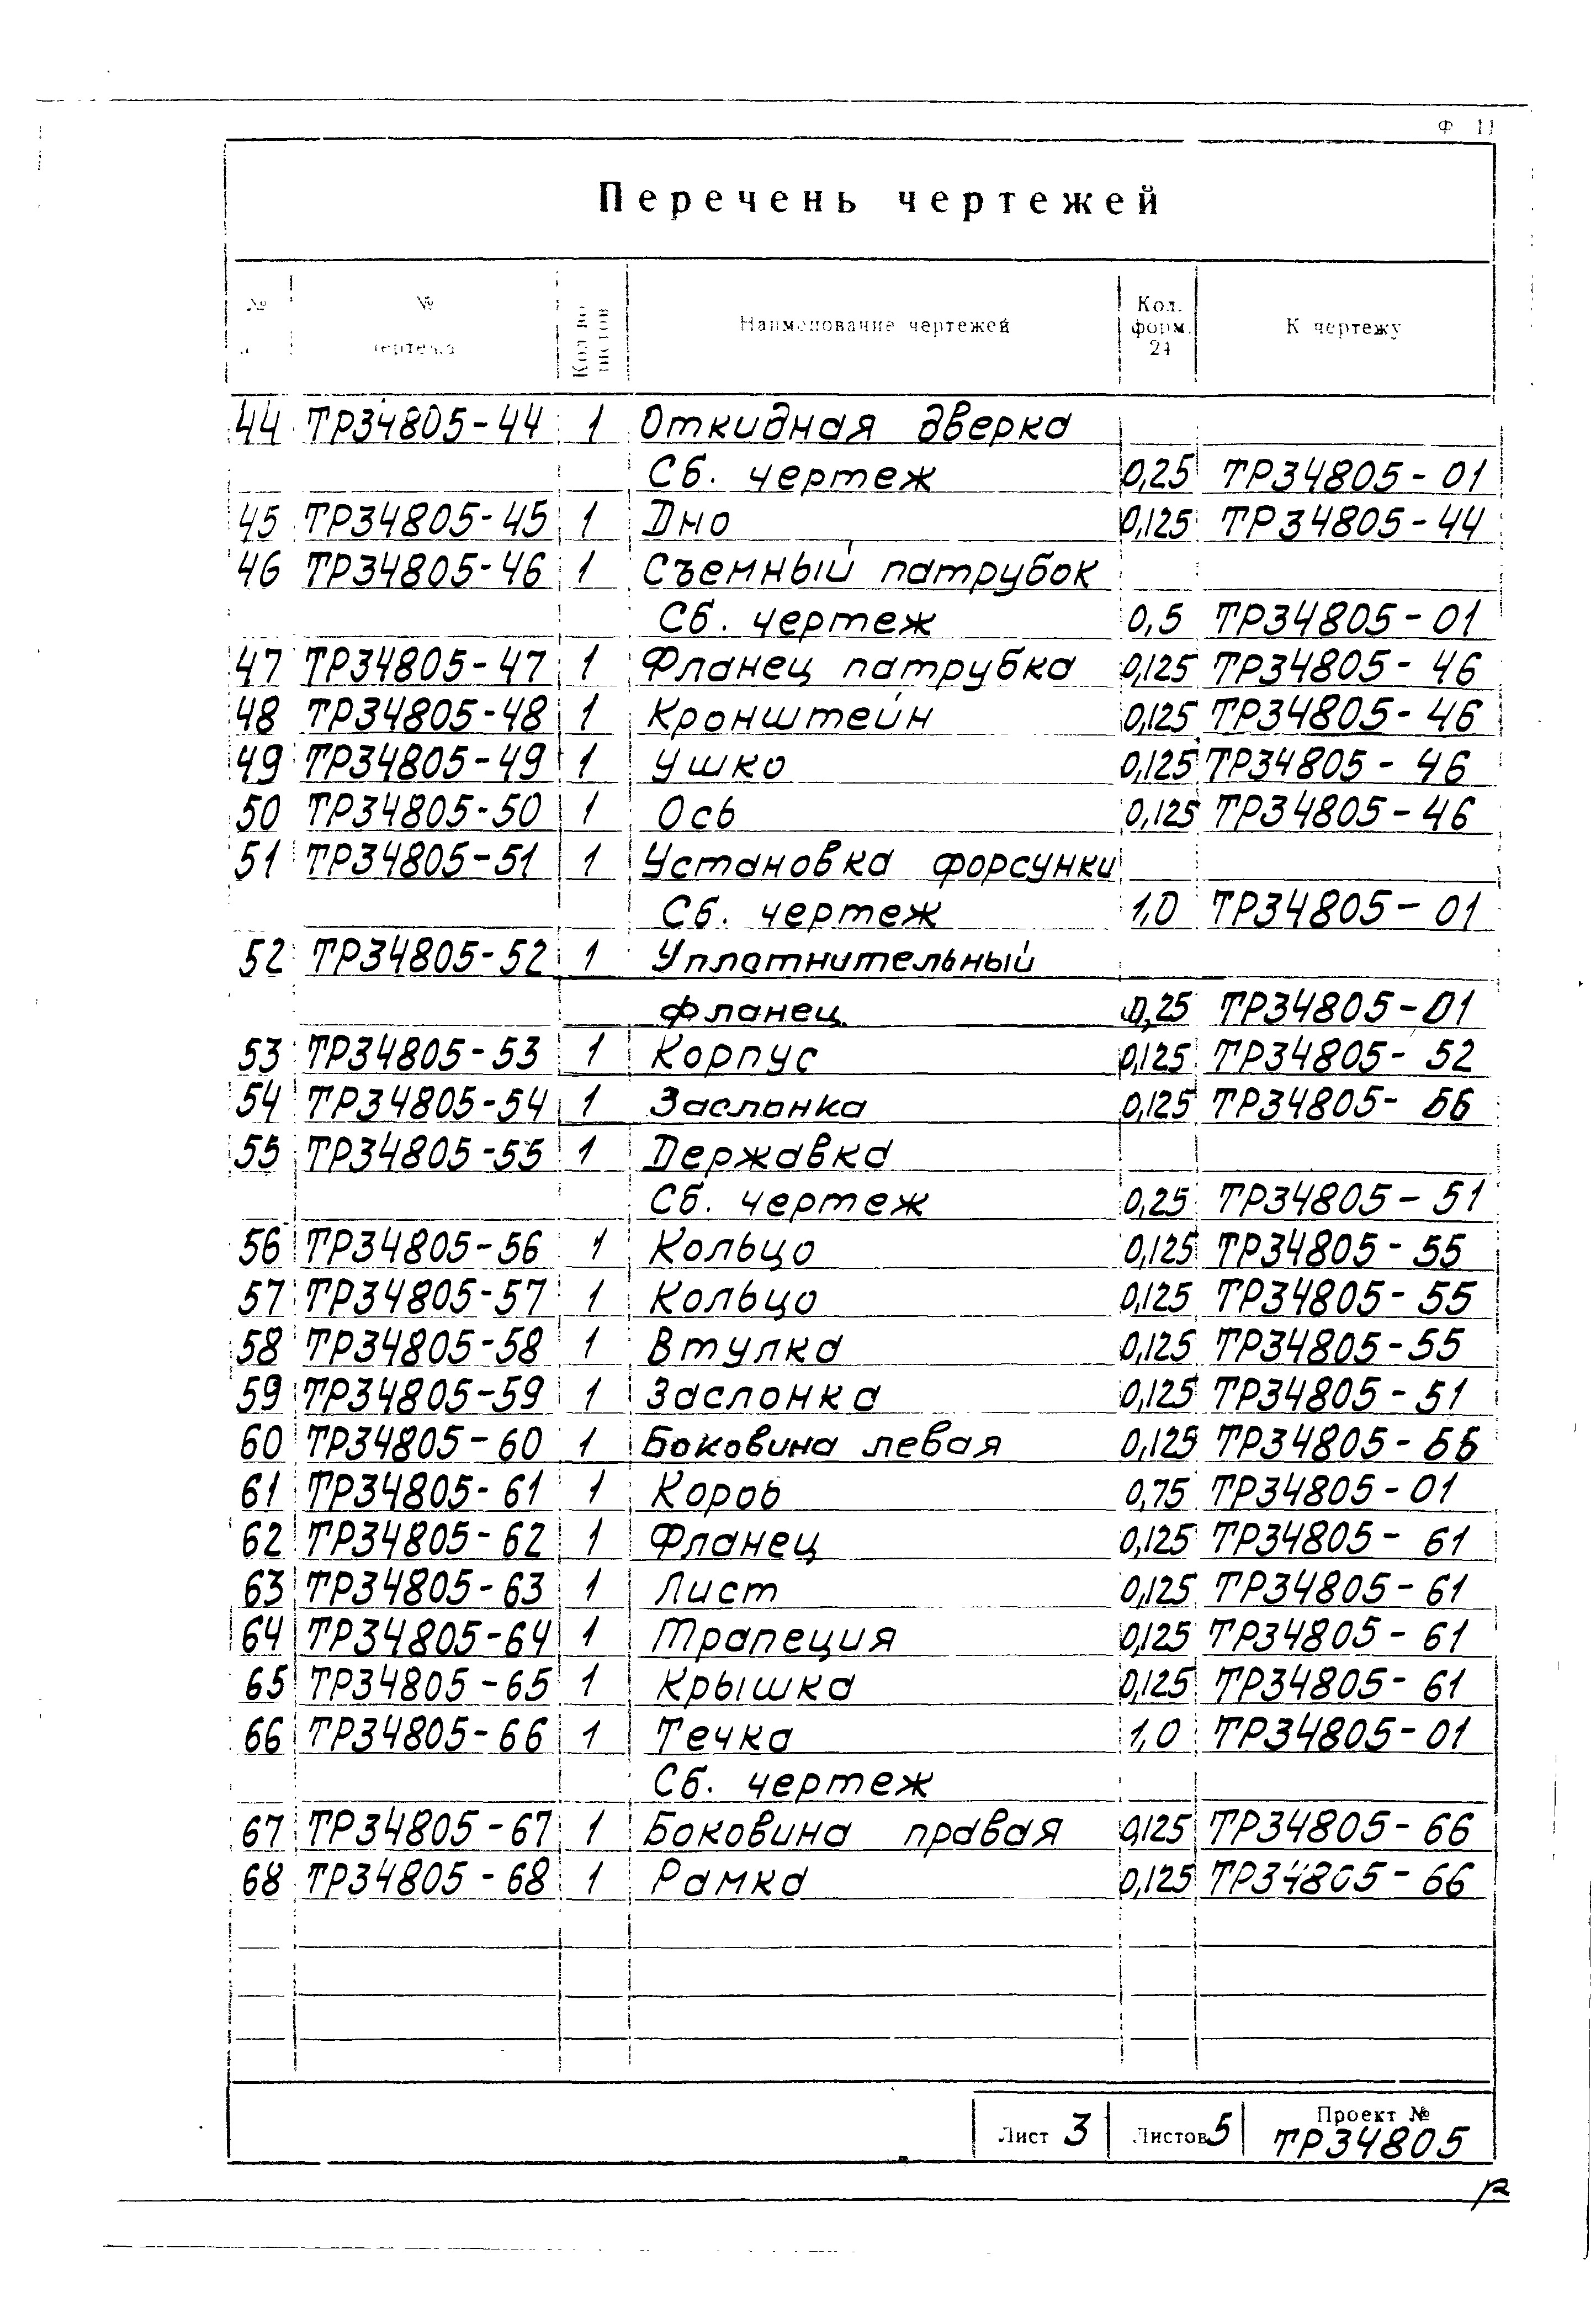 Ф 11
Перечень чертежей
№ № Кол во листов Наименование чертежей Кол. форм. 24 К чертежу
чертежа
44 ТР34805-44 1 Откидная дверка
Сб. чертеж 0,25 ТР34805-01
45 ТР34805-45 1 Дно 0,125 ТР34805-44
46 ТР34805-46 1 Съемный патрубок
Сб. чертеж 0,5 ТР34805-01
47 ТР34805-47 1 Фланец патрубка 0,125 ТР34805-46
48 ТР34805-48 1 Кронштейн 0,125 ТР34805-46
49 ТР34805-49 1 Ушко 0,125 ТР34805-46
50 ТР34805-50 1 Ось 0,125 ТР34805-46
51 ТР34805-51 1 Установка форсунки
Сб. чертеж 1,0 ТР34805-01
52 ТР34805-52 1 Уплотнительный
фланец 0,25 ТР34805-01
53 ТР34805-53 1 Корпус 0,125 ТР34805-52
54 ТР34805-54 1 Заслонка 0,125 ТР34805-66
55 ТР34805-55 1 Державка
Сб. чертеж 0,25 ТР34805-51
56 ТР34805-56 1 Кольцо 0,125 ТР34805-55
57 ТР34805-57 1 Кольцо 0,125 ТР34805-55
58 ТР34805-58 1 Втулка 0,125 ТР34805-55
59 ТР34805-59 1 Заслонка 0,125 ТР34805-51
60 ТР34805-60 1 Боковина левая 0,125 ТР34805-66
61 ТР34805-61 1 Короб 0,75 ТР34805-01
62 ТР34805-62 1 Фланец 0,125 ТР34805-61
63 ТР34805-63 1 Лист 0,125 ТР34805-61
64 ТР34805-64 1 Трапеция 0,125 ТР34805-61
65 ТР34805-65 1 Крышка 0,125 ТР34805-61
66 ТР34805-66 1 Течка 1,0 ТР34805-01
Сб. чертеж
67 ТР34805-67 1 Боковина правая 0,125 ТР34805-66
68 ТР34805-68 1 Рамка 0,125 ТР34805-66
Лист 3 Листов 5 Проект №
ТР34805